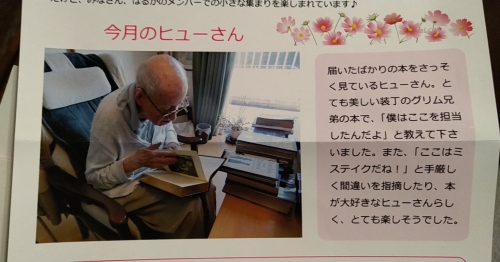 だけど、みなさん、はるかのメンバーでの小さな集まりを楽しまれています♪
今月のヒューさん
届いたばかりの本をさっそ
く見ているヒューさん。と
ても美しい装丁のグリム兄
弟の本で、「僕はここを担当
したんだよ」と教えて下さ
いました。また、「ここはミ
ステイクだね！」と手厳し
く間違いを指摘したり、本
が大好きなヒューさんらし
く、とても楽しそうでした。